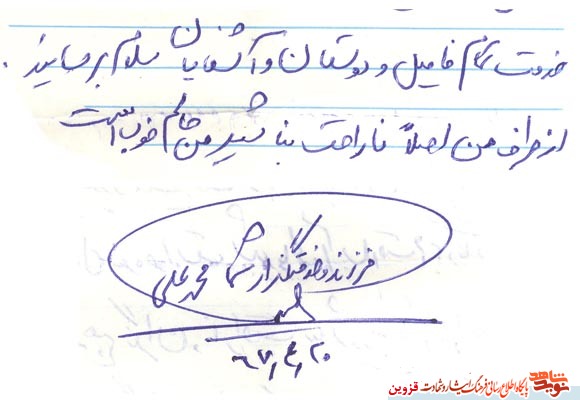 خدمت تمام فامیل و دوستان و آشنایان سلام برسانید.
از طرف من اصلاً ناراحت نباشید من حالم خوب است
فرزند خدمتگذار شما محمدعلی
۶۷٫۴٫۲۰
نوید شاهد
پایگاه اطلاع رسانی فرهنگ ایثار و شهادت قزوین